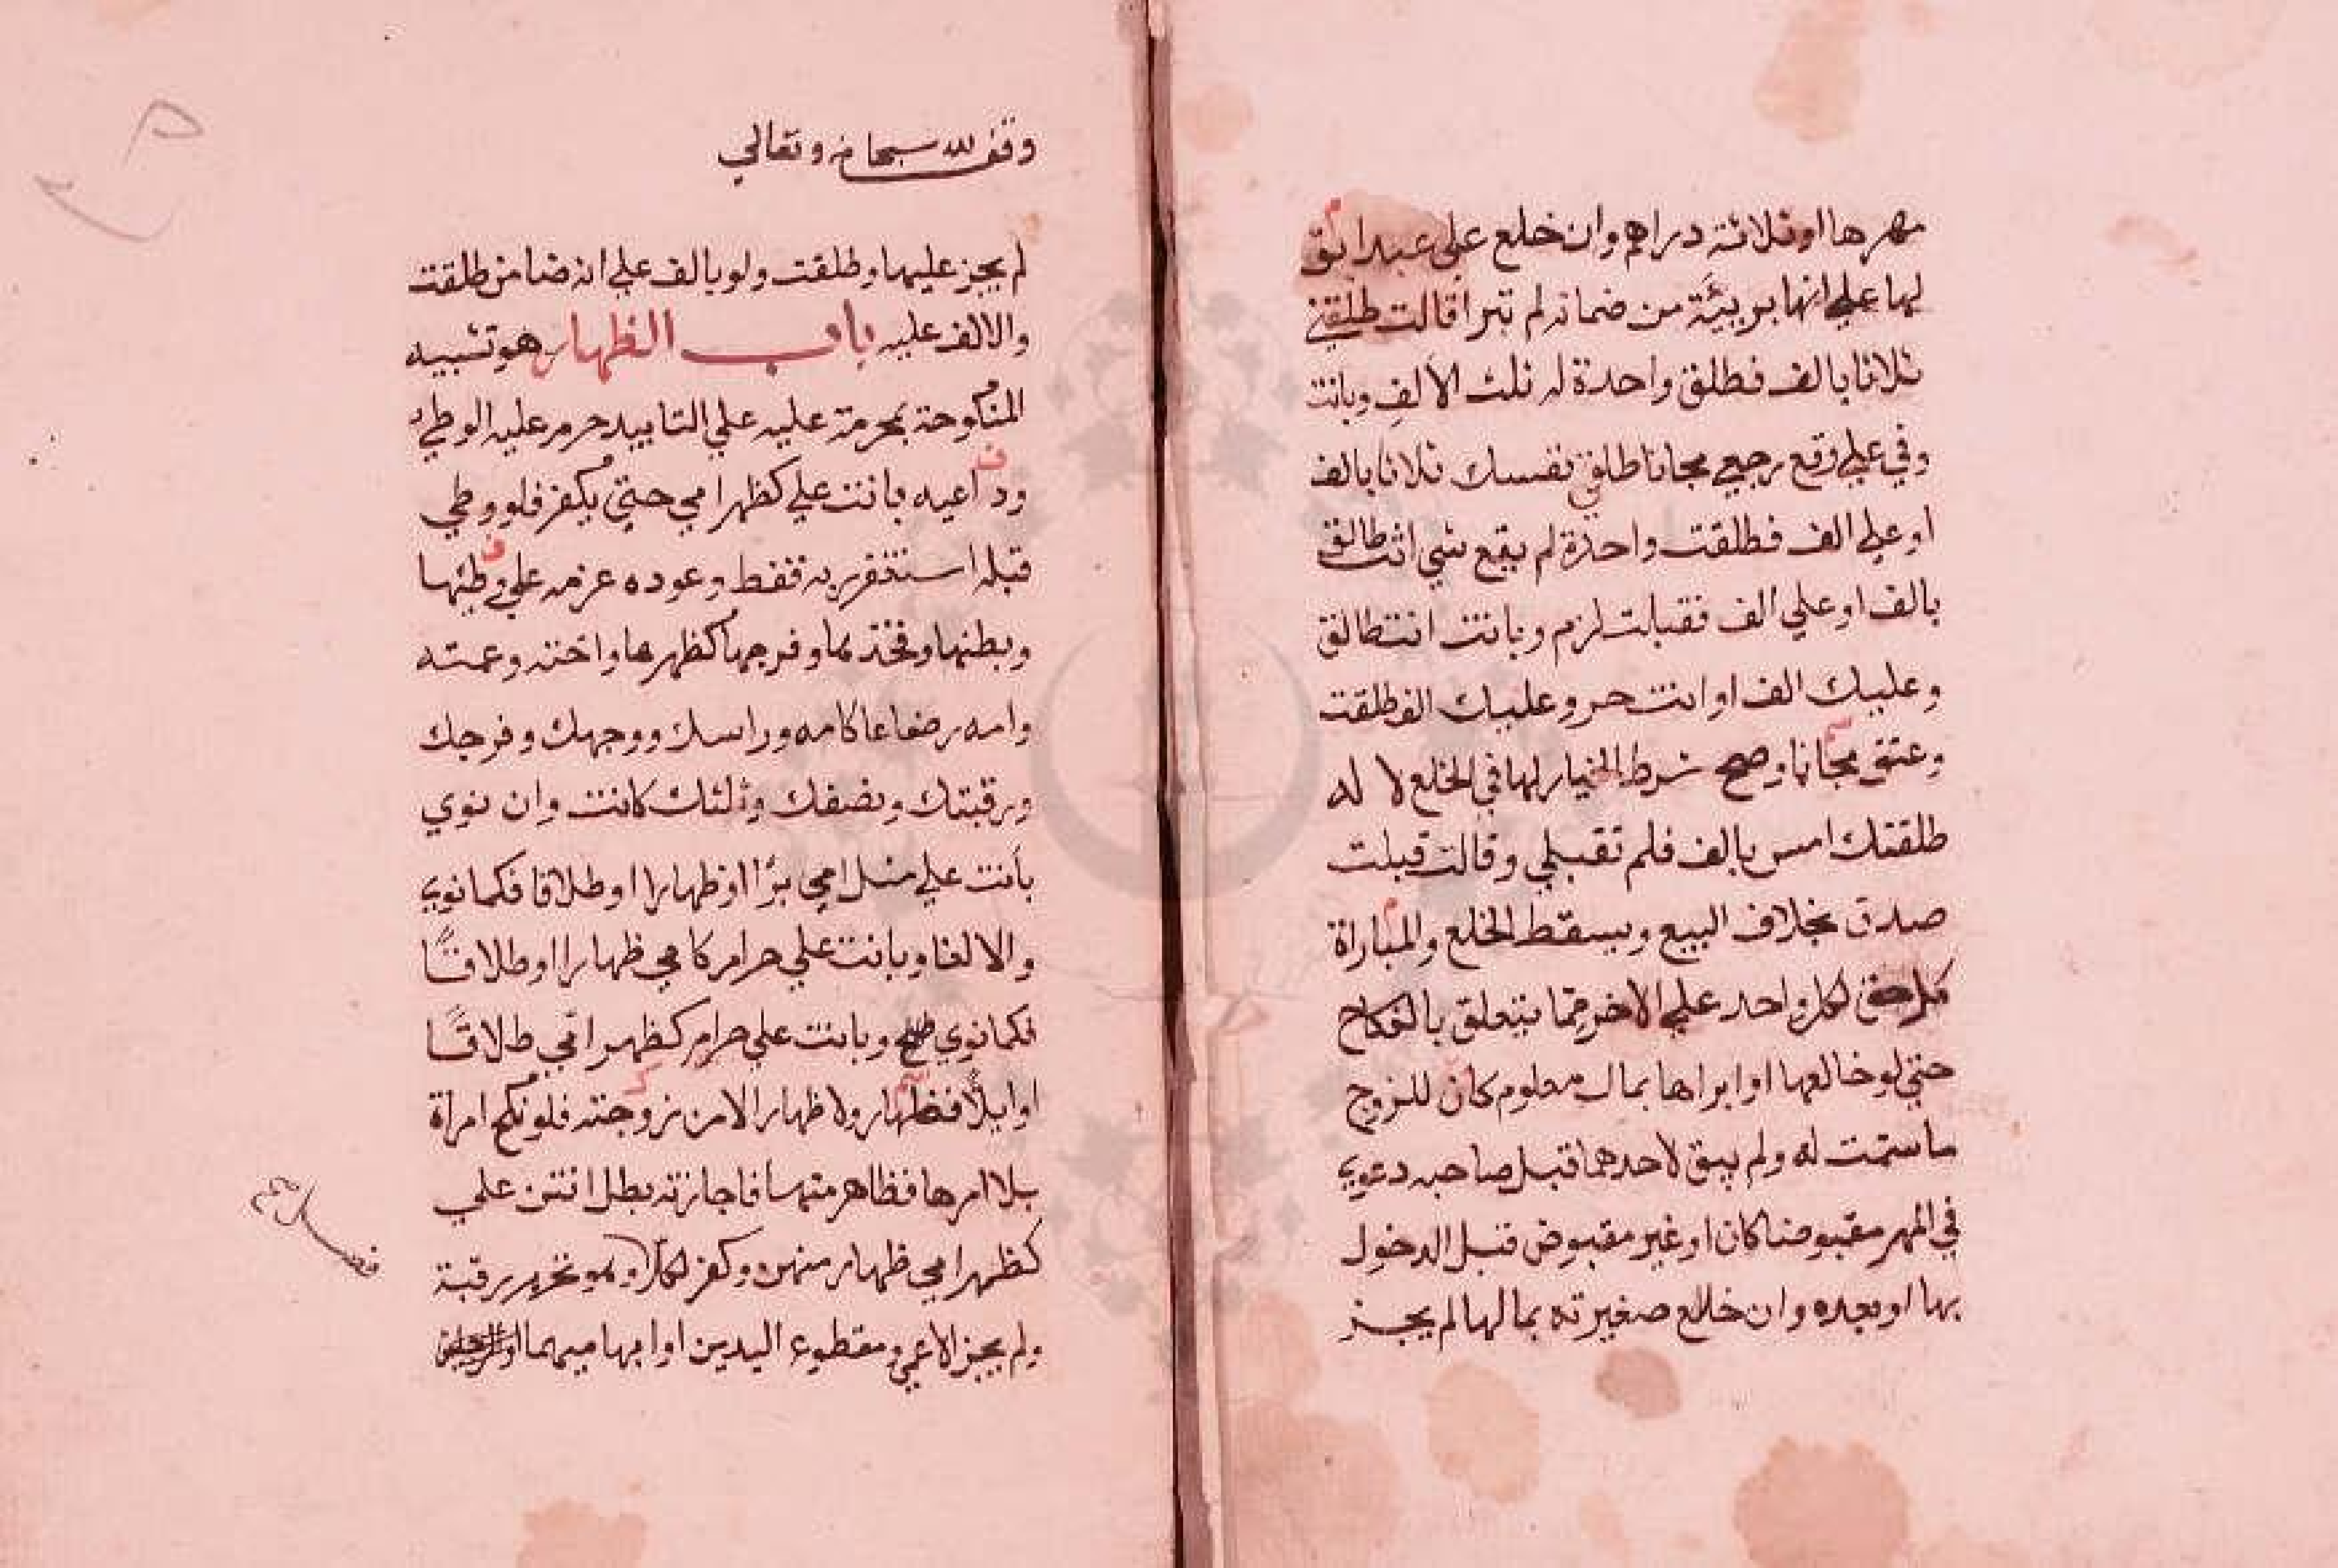 مهرها او ثلاثة دراهم وان خلع علي عبد ابق
لها علي انها بريئة من ضمانه لم تبرا قالت طلقني
ثلاثا بالف فطلق واحدة له ثلث الالف وبانت
وفي علي وقع رجعي مجانا طلقي نفسك ثلاثا بالف
او علي الف فطلقت واحدة لم يقع شي انت طالق
بالف او علي الف فقبلت لزم وبانت انت طالق
وعليك الف او انت حر وعليك الف طلقت
وعتق مجانا وصح شرط الخيار لها في الخلع لا له
طلقتك امس بالف فلم تقبلي وقالت قبلت
صدق بخلاف البيع ويسقط الخلع والمباراة
كل حق لكل واحد علي الاخر مما يتعلق بالنكاح
حتي لو خالعها او ابراها بمال معلوم كان للزوج
ما سمت له ولم يبق لاحدهما قبل صاحبه دعوي
في المهر مقبوضا كان او غير مقبوض قبل الدخول
بها او بعده وان خلع صغيرته بمالها لم يجز
وقف لله سبحانه وتعالي
لم يجز عليها وطلقت ولو بالف علي انه ضامن طلقت
والالف عليه باب الظهار هو تشبيه
المنكوحة بمحرمة عليه علي التابيد حرم عليه الوطي
ودواعيه بانت علي كظهر امي حتي يكفر فلو وطي
قبله استغفر ربه فقط وعوده عزمه علي وطئها
وبطنها وفخذها وفرجها كظهرها واخته وعمته
وامه رضاعا كامه وراسك ووجهك وفرجك
ورقبتك ونصفك وثلثك كانت وان نوي
بأنت علي مثل امي برا او ظهارا او طلاقا فكما نوي
والا لغا وبانت علي حرام كامي ظهارا او طلاقا
فكما نوي وبانت علي حرام كظهر امي طلاقا
او ايلا فظهار ولا ظهار الا من زوجته فلو نكح امراة
بلا امرها فظاهر منها فاجازته بطل انتن علي
كظهر امي ظهار منهن وكفر لكل وهو تحرير رقبة
ولم يجز الاعمي ومقطوع اليدين او ابهاميهما او الرجلين
فصل